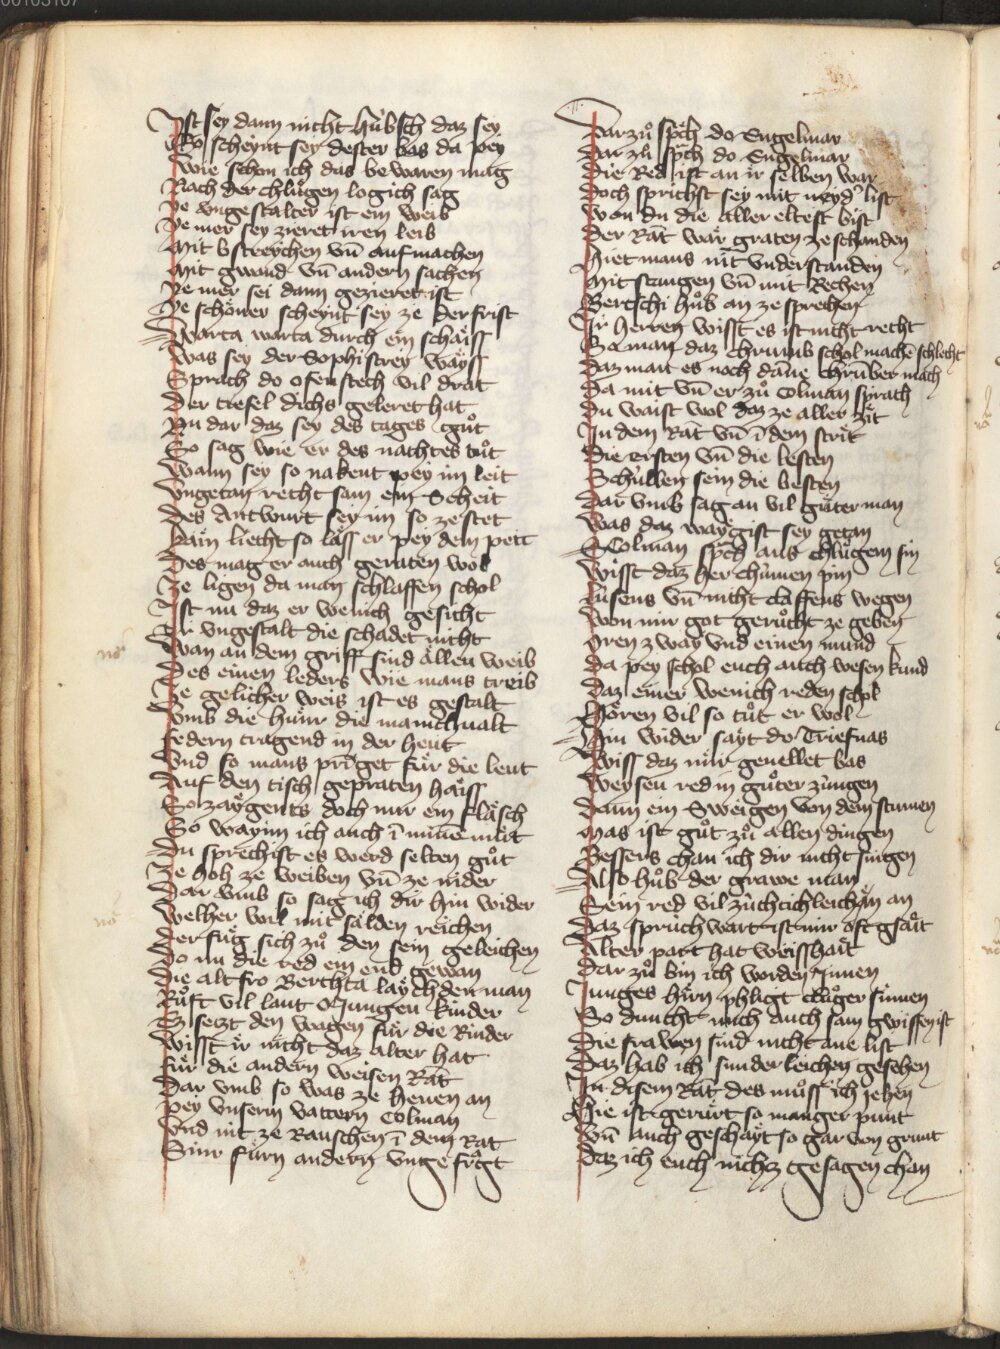 00103107
Ist sey dann nicht hübsch daz sey
So scheynt sey dester bas da pey
Wie schon ich das bewaren mag
Nach der chlůgen logich sag
Ye vngestalter ist ein weib
Ye mer sey zieret iren leib
Mit bstreychen vn̄ aufmachen
Mit gwand vn̄ andern sachen
Ye mer sei dann gezieret ist
Ye schöner scheynt sey ze der frist
Warta warta durch ein schäiss
Was sey der Sophistrey wayss
Sprach do ofenstech vil drat
Der tiefel dichs geleret hat
Nu dar daz sey des tages tgůt
So sag wie er des nachtes tůt
Wann sey so nakent pey im leit
Vngetan recht sam ein Scheit
Des Antwurt sey im so ze stet
Kain liecht so läss er pey dem pett
Des mag er auch geraten wol
Ze ligen da man schlaffen schol
Ist nu daz er wenich gesicht
Ir vngestalt die schadet nicht
Wan an dem griff sind allen weib
Des einen leders wie mans treib
Ze gelicher weis ist es gestalt
Vmb die hünr die manichualt
Federn tragend in der heut
Vnd so mans pringet für die leut
Auf den tisch gepraten häiss
So zaygents doch nur ein fläsch
So waynn ich auch ī minē můt
Du sprechist es werd selten gůt
Ze hoh ze weiben vn̄ ze nider
Dar vmb so sag ich dir hin wider
Welher wil mit sälden reichen
Der füg sich zů den sein geleichen
Do nu die red ein end gewan
Die alt fro Berchta läych den man
Růft vil laut O Jungen kinder
Er setzt den wagen für die Rinder
Wisst ir nicht daz alter hat
Für die andern weisen Rat
Dar vmb so was ze heuen an
Pey vnserm vattern Colman
Vnd nit ze Rauschen ī dem Rat
Sinr fürn andern vngefrogt
Dar zů sp̄ch do Engelmar
Dar zů sp̄ch do Engelmar
Die Red ist an ir selben war
Doch sprichst sey mit neyd' list
Won du die aller eltest bist
Der Rāt wär graten ze schanden
Hiet mans nit vnderstanden
Mit stangen vn̄ mit Rechen
Bertschi hůb an ze sprechen
Ir herren wisst es ist nicht recht
So man daz chrumb schol machē schlecht
Daz man es noch dāne chrüber mach
Da mit vn̄ er zů Colman sprach
Du waist wol daz ze aller zit
In dem Rāt vn̄ ī dem strit
Die ersten vn̄ die lesten
Schüllen sein die besten
Dar vmb sag an vil gůter man
Was daz waygist sey getan
Colman sp̄ch aus chlůgem sin
Wisst daz her chumen pin
Lusens vn̄ nicht claffens wegen
Won mir got gerůcht ze geben
Oren zway vnd einen mund
Da pey schol euch auch wesen kund
Daz einer wenich reden schol
Hören vil so tůt er wol
Hin wider sayt do Triefnas
Wiss daz mir geuellet bas
Weysen red in gůter zungen
Dann ein Sweigen von dem stumen
Mas ist gůt zů allen dingen
Bessers chan ich dir nicht singen
Also hůb der grawe man
Sein red vil zuchtichleichen an
Daz sprüchwart ist mir oft gsait
Alter part hat weisshait
Dar zů bin ich worden Innen
Junges hirn phligt clůger sinnen
So duncht mich auch sam gwissen ist
Die frawen sind nicht ane list
Daz hab ich sunderleichen gesehen
In disem Rāt des můss ich jehen
Hie ist gerürt so manger punt
Vn̄ auch geschayt so gar von grunt
Daz ich euch nichcz tgesagen chan